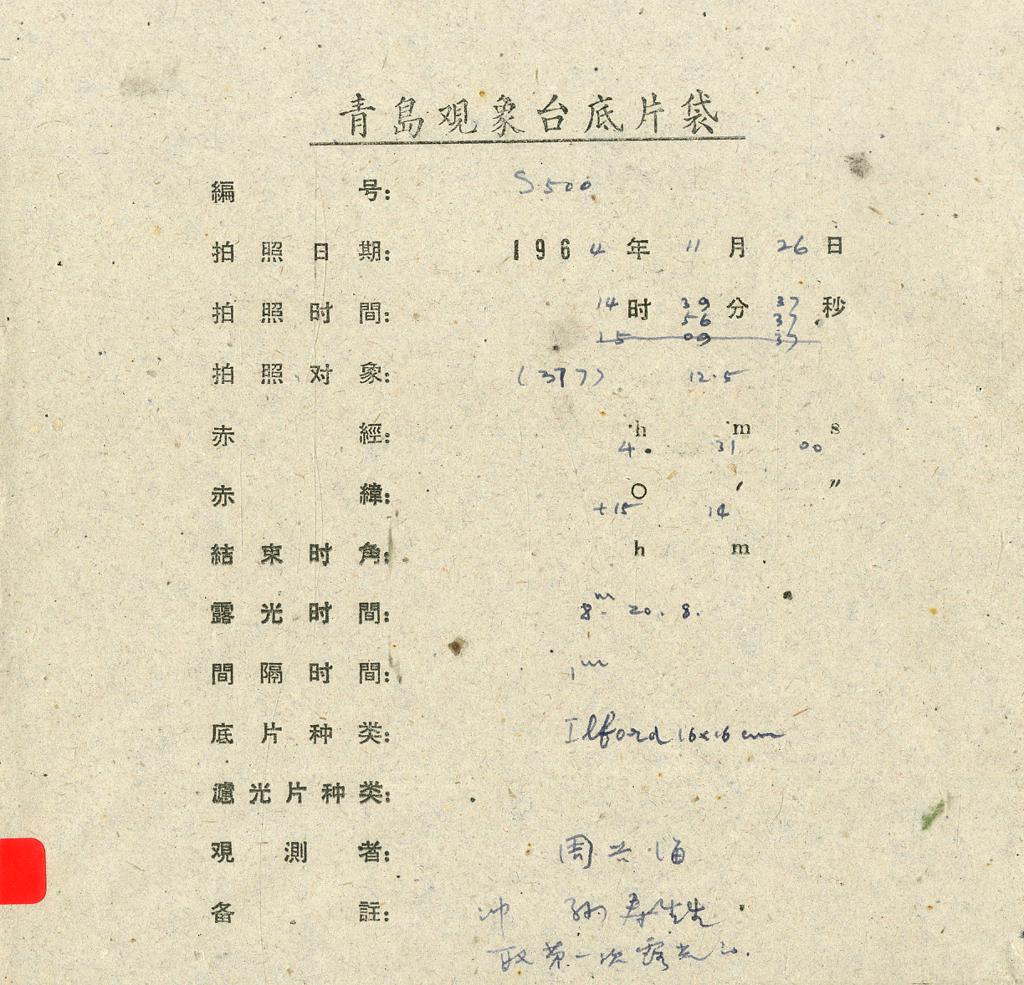 青島观象台底片袋
編号: S500
拍照日期: 1964年11月26日
拍照时間: 14时39分37秒
56 37
15 09 37
拍照对象: (377) 12.5
赤經: 4h 31m 00s
赤緯: +15° 14′ ″
結束时角: h m
露光时間: 8m 20. 8.
間隔时間: 1m
底片种类: Ilford 16x16 cm
濾光片种类:
观測者: 周兴海
备註: 冲
取第一次露光